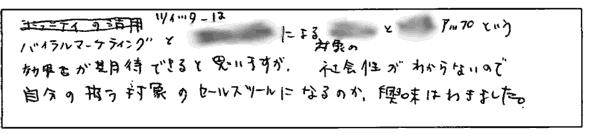 コミュニティの活用 ツイッターは
バイラルマーケティングと による と アップという
対象の
効果が期待できると思いますが、社会性がわからないので
自分の扱う対象のセールスツールになるのか、興味はわきました。